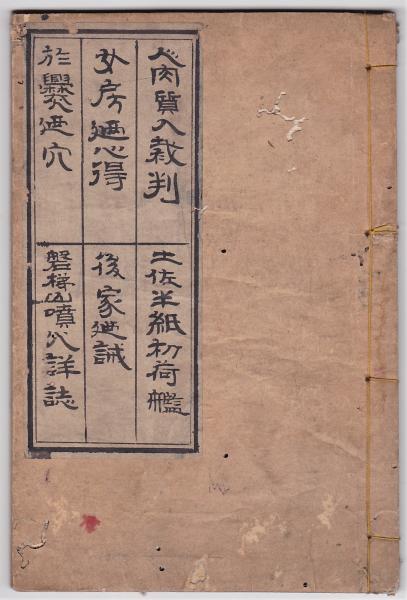 人肉質入裁判
土佐半紙初荷艦
女房廼心得
後家廼誡
於爨廼穴
磐梯山噴火詳誌